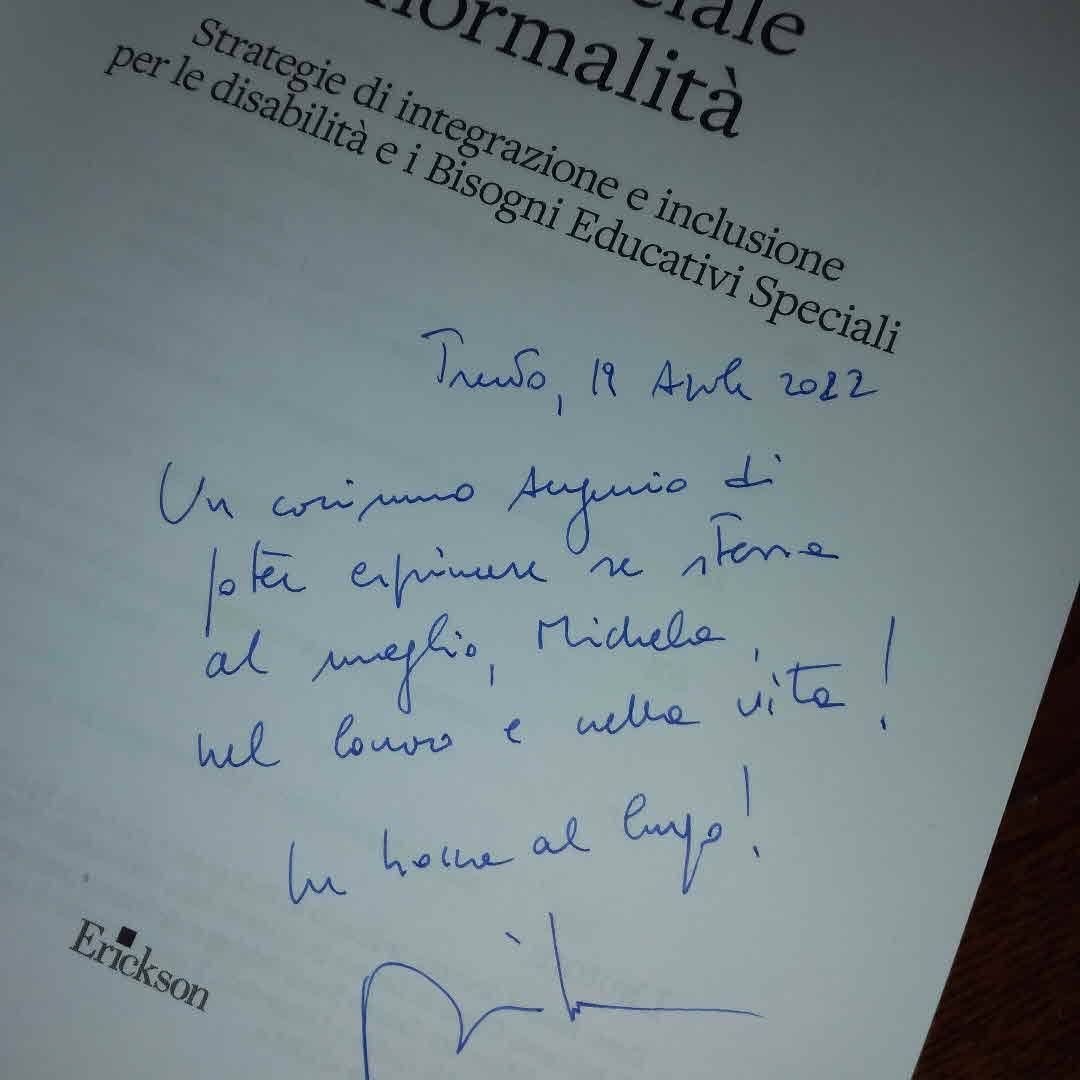 ciale
normalità
Strategie di integrazione e inclusione
per le disabilità e i Bisogni Educativi Speciali
Trento, 19 Aprile 2022
Un carissimo augurio di
poter esprimere se stessa
al meglio, Michela,
nel lavoro e nella vita!
In bocca al lupo!
Erickson